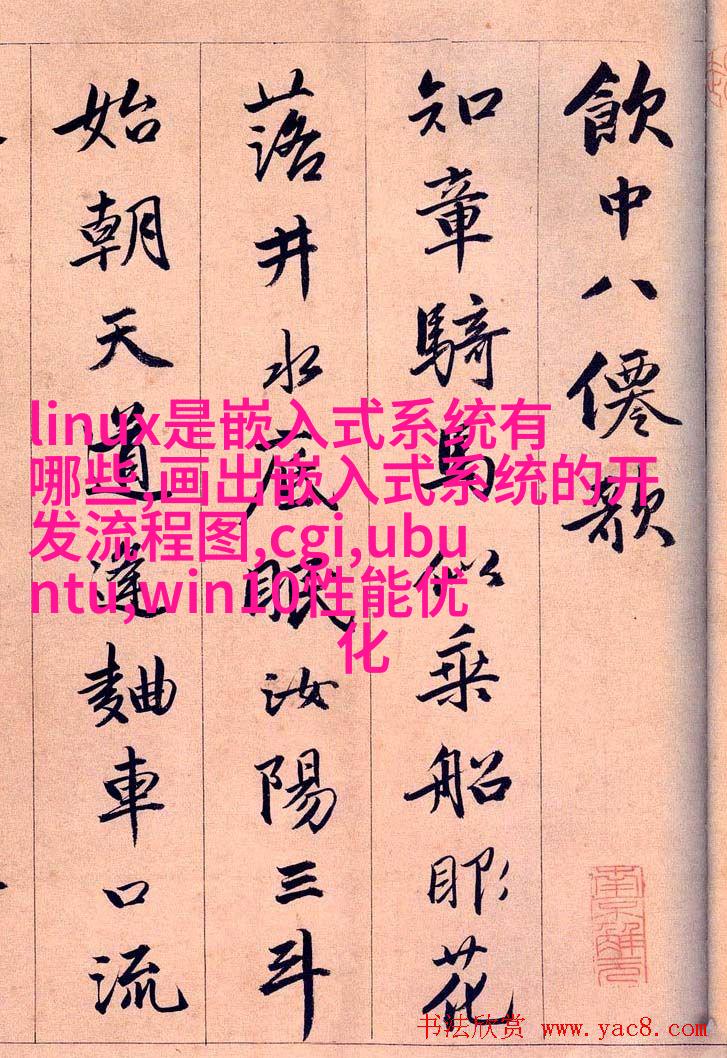 飲中八僊歌
知章騎馬似乘船眼花
落井水底眠汝陽三斗
始朝天道逢麯車口流
linux是嵌入式系统有
哪些,画出嵌入式系统的开
发流程图,cgi,ubu
ntu,win10性能优
化
南京解元
书法欣赏 www.yac8.com